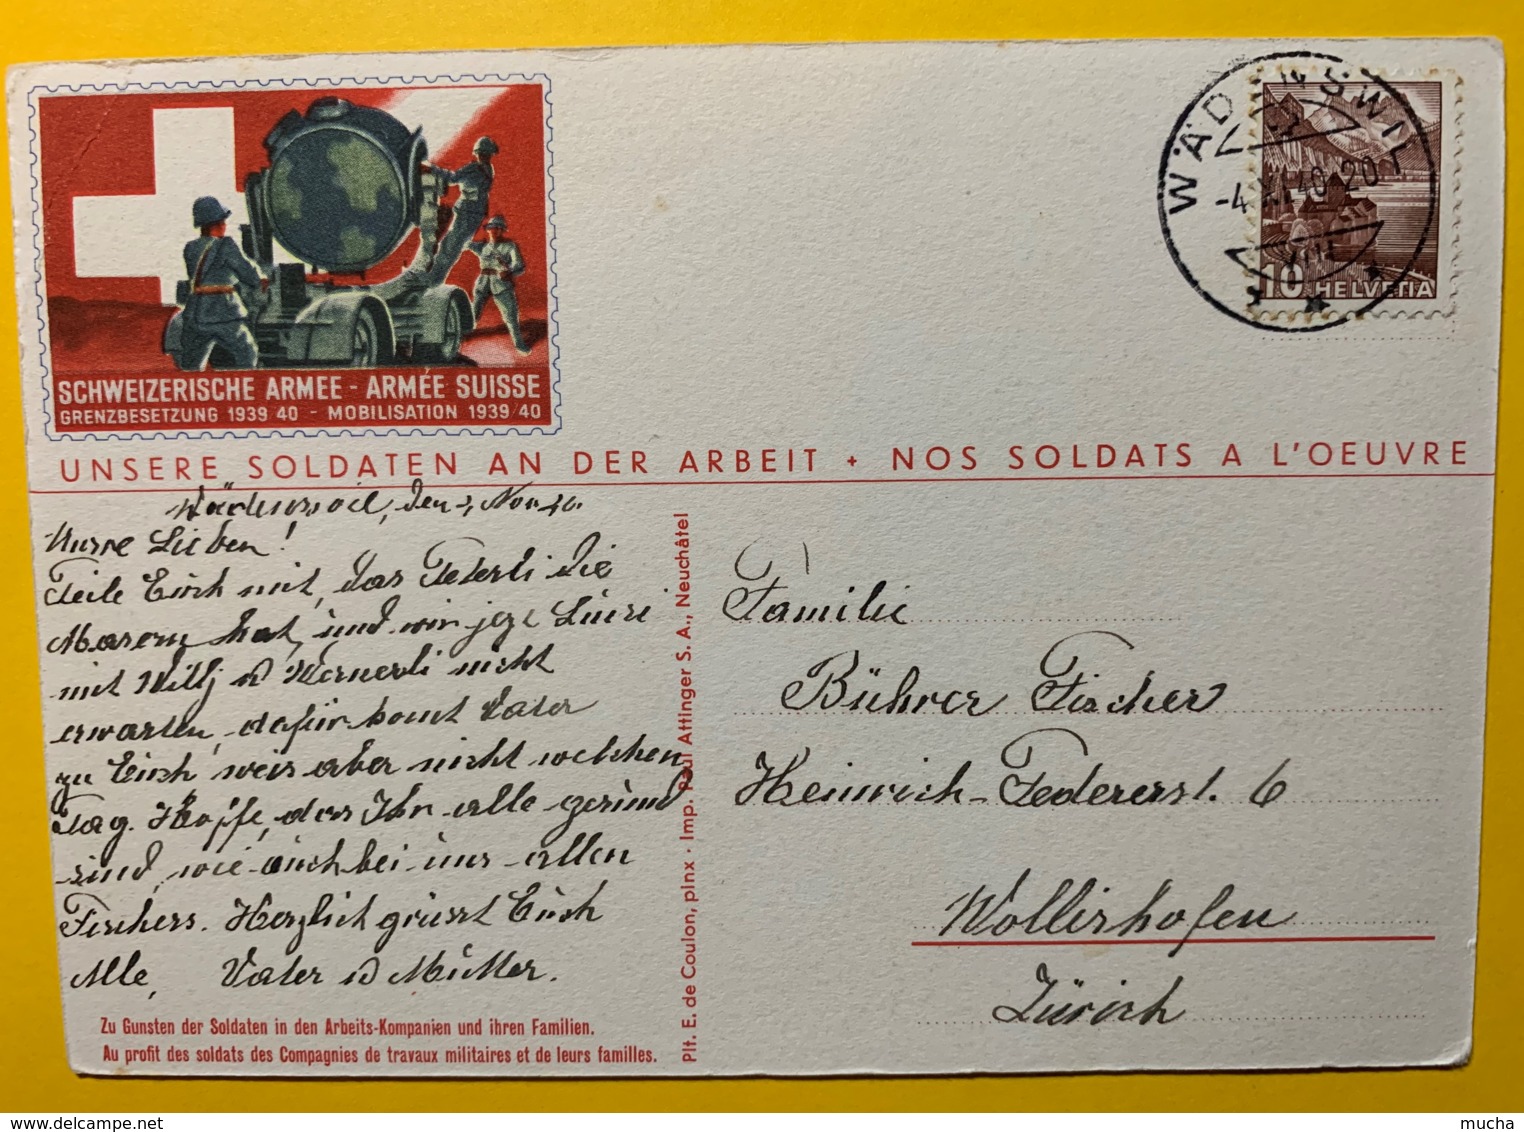 SCHWEIZERISCHE ARMEE - ARMÉE SUISSE
GRENZBESETZUNG 1939 40 - MOBILISATION 1939/40
WÄDENSWIL
-4.XI.40.20
VIII
10 HELVETIA
UNSERE SOLDATEN AN DER ARBEIT + NOS SOLDATS A L'OEUVRE
Wädenswil, den Nov 40.
Unsre Lieben!
Teile Euch mit, das Peterli die
Masern hat, und wir jezt
mit Willy u Wernerli nicht
erwarten, dafür komt Vater
zu Euch weis aber nicht welchen
Tag. Hoffe, das Ihr alle gesund
sind, wie auch bei uns allen
Fischers. Herzlich grüsst Euch
Alle, Vater u Mutter.
Zu Gunsten der Soldaten in den Arbeits-Kompanien und ihren Familien.
Au profit des soldats des Compagnies de travaux militaires et de leurs familles.
Plt. E. de Coulon, pinx · Imp. Paul Attinger S. A., Neuchâtel
Familie
Bührer Fischer
Heinrich-Federerst. 6
Wollishofen
Zürich
delcampe.net
mucha